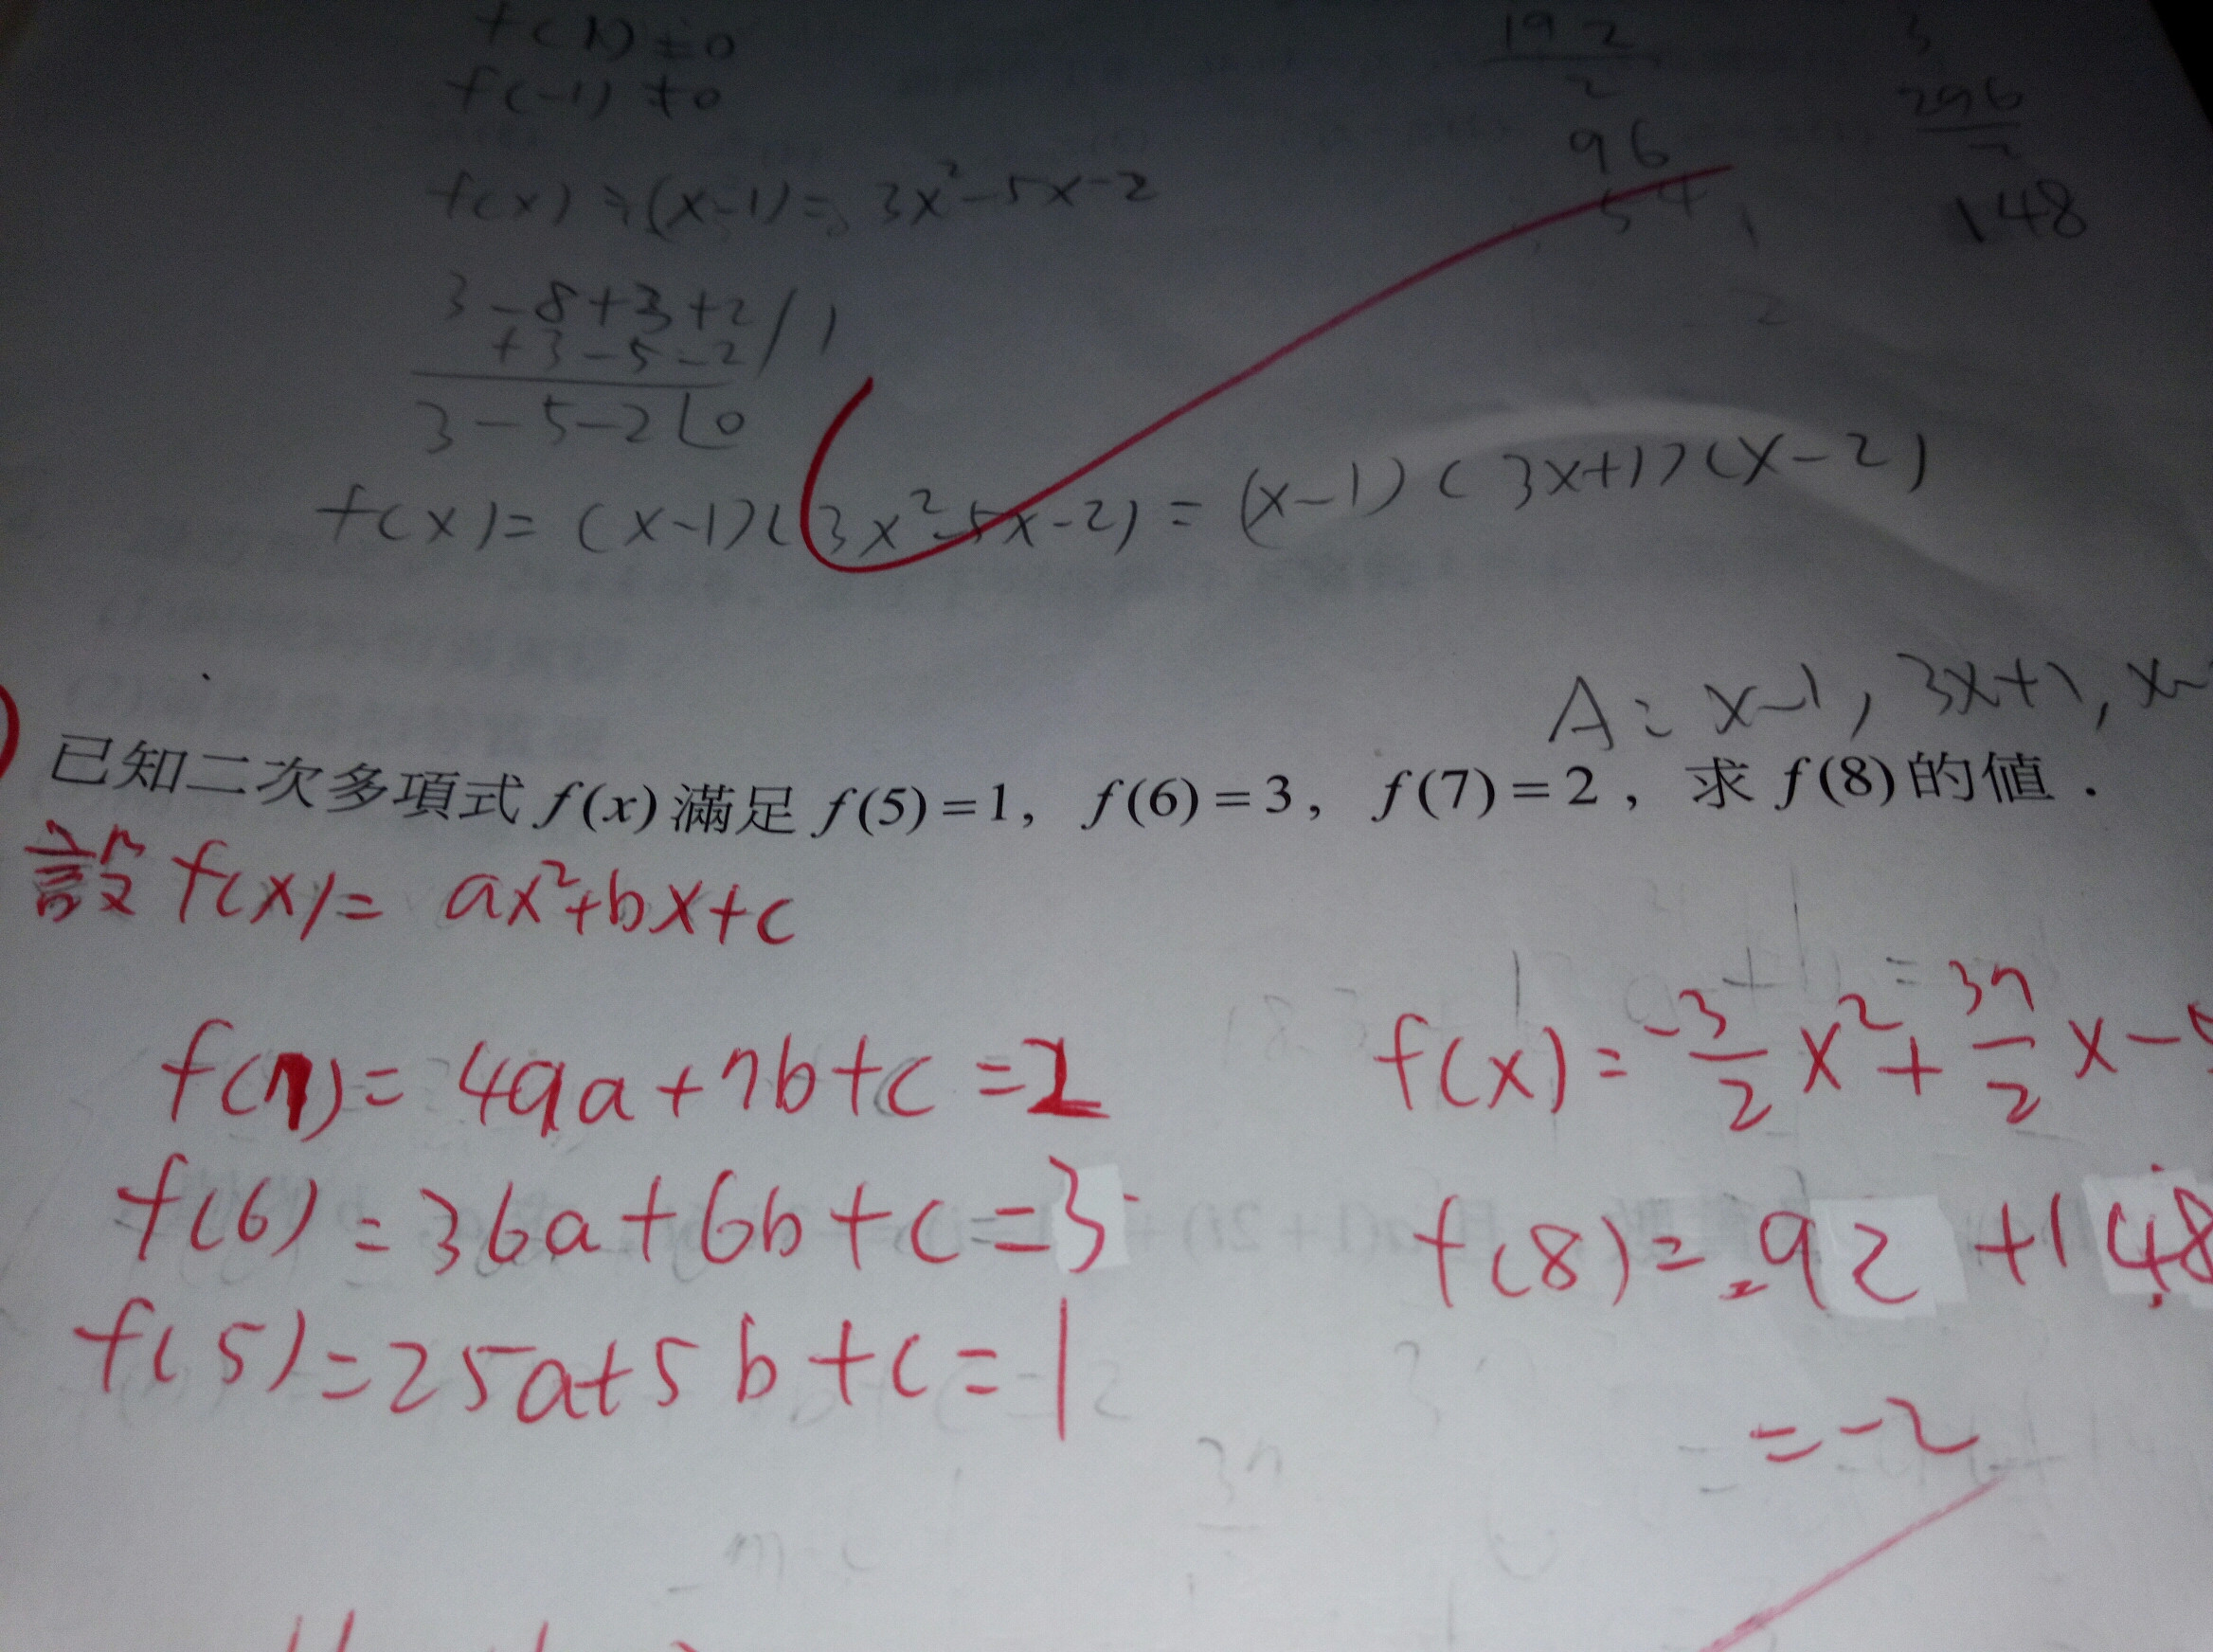 f(1)=0
f(-1)≠0
f(x)÷(x-1)= 3x²-5x-2
3-8+3+2/1
+3-5-2
3-5-2 0
f(x)=(x-1)(3x²-5x-2)=(x-1)(3x+1)(x-2)
192
2
96
54
3
296
2
148
A: x-1, 3x+1, x-
已知二次多項式 f(x) 滿足 f(5)=1, f(6)=3, f(7)=2, 求 f(8) 的值.
設 f(x)= ax²+bx+c
f(7)= 49a+7b+c=2
f(6)=36a+6b+c=3
f(5)=25a+5b+c=1
f(x)=-3/2x²+37/2x-
f(8)=-92+148
=-2